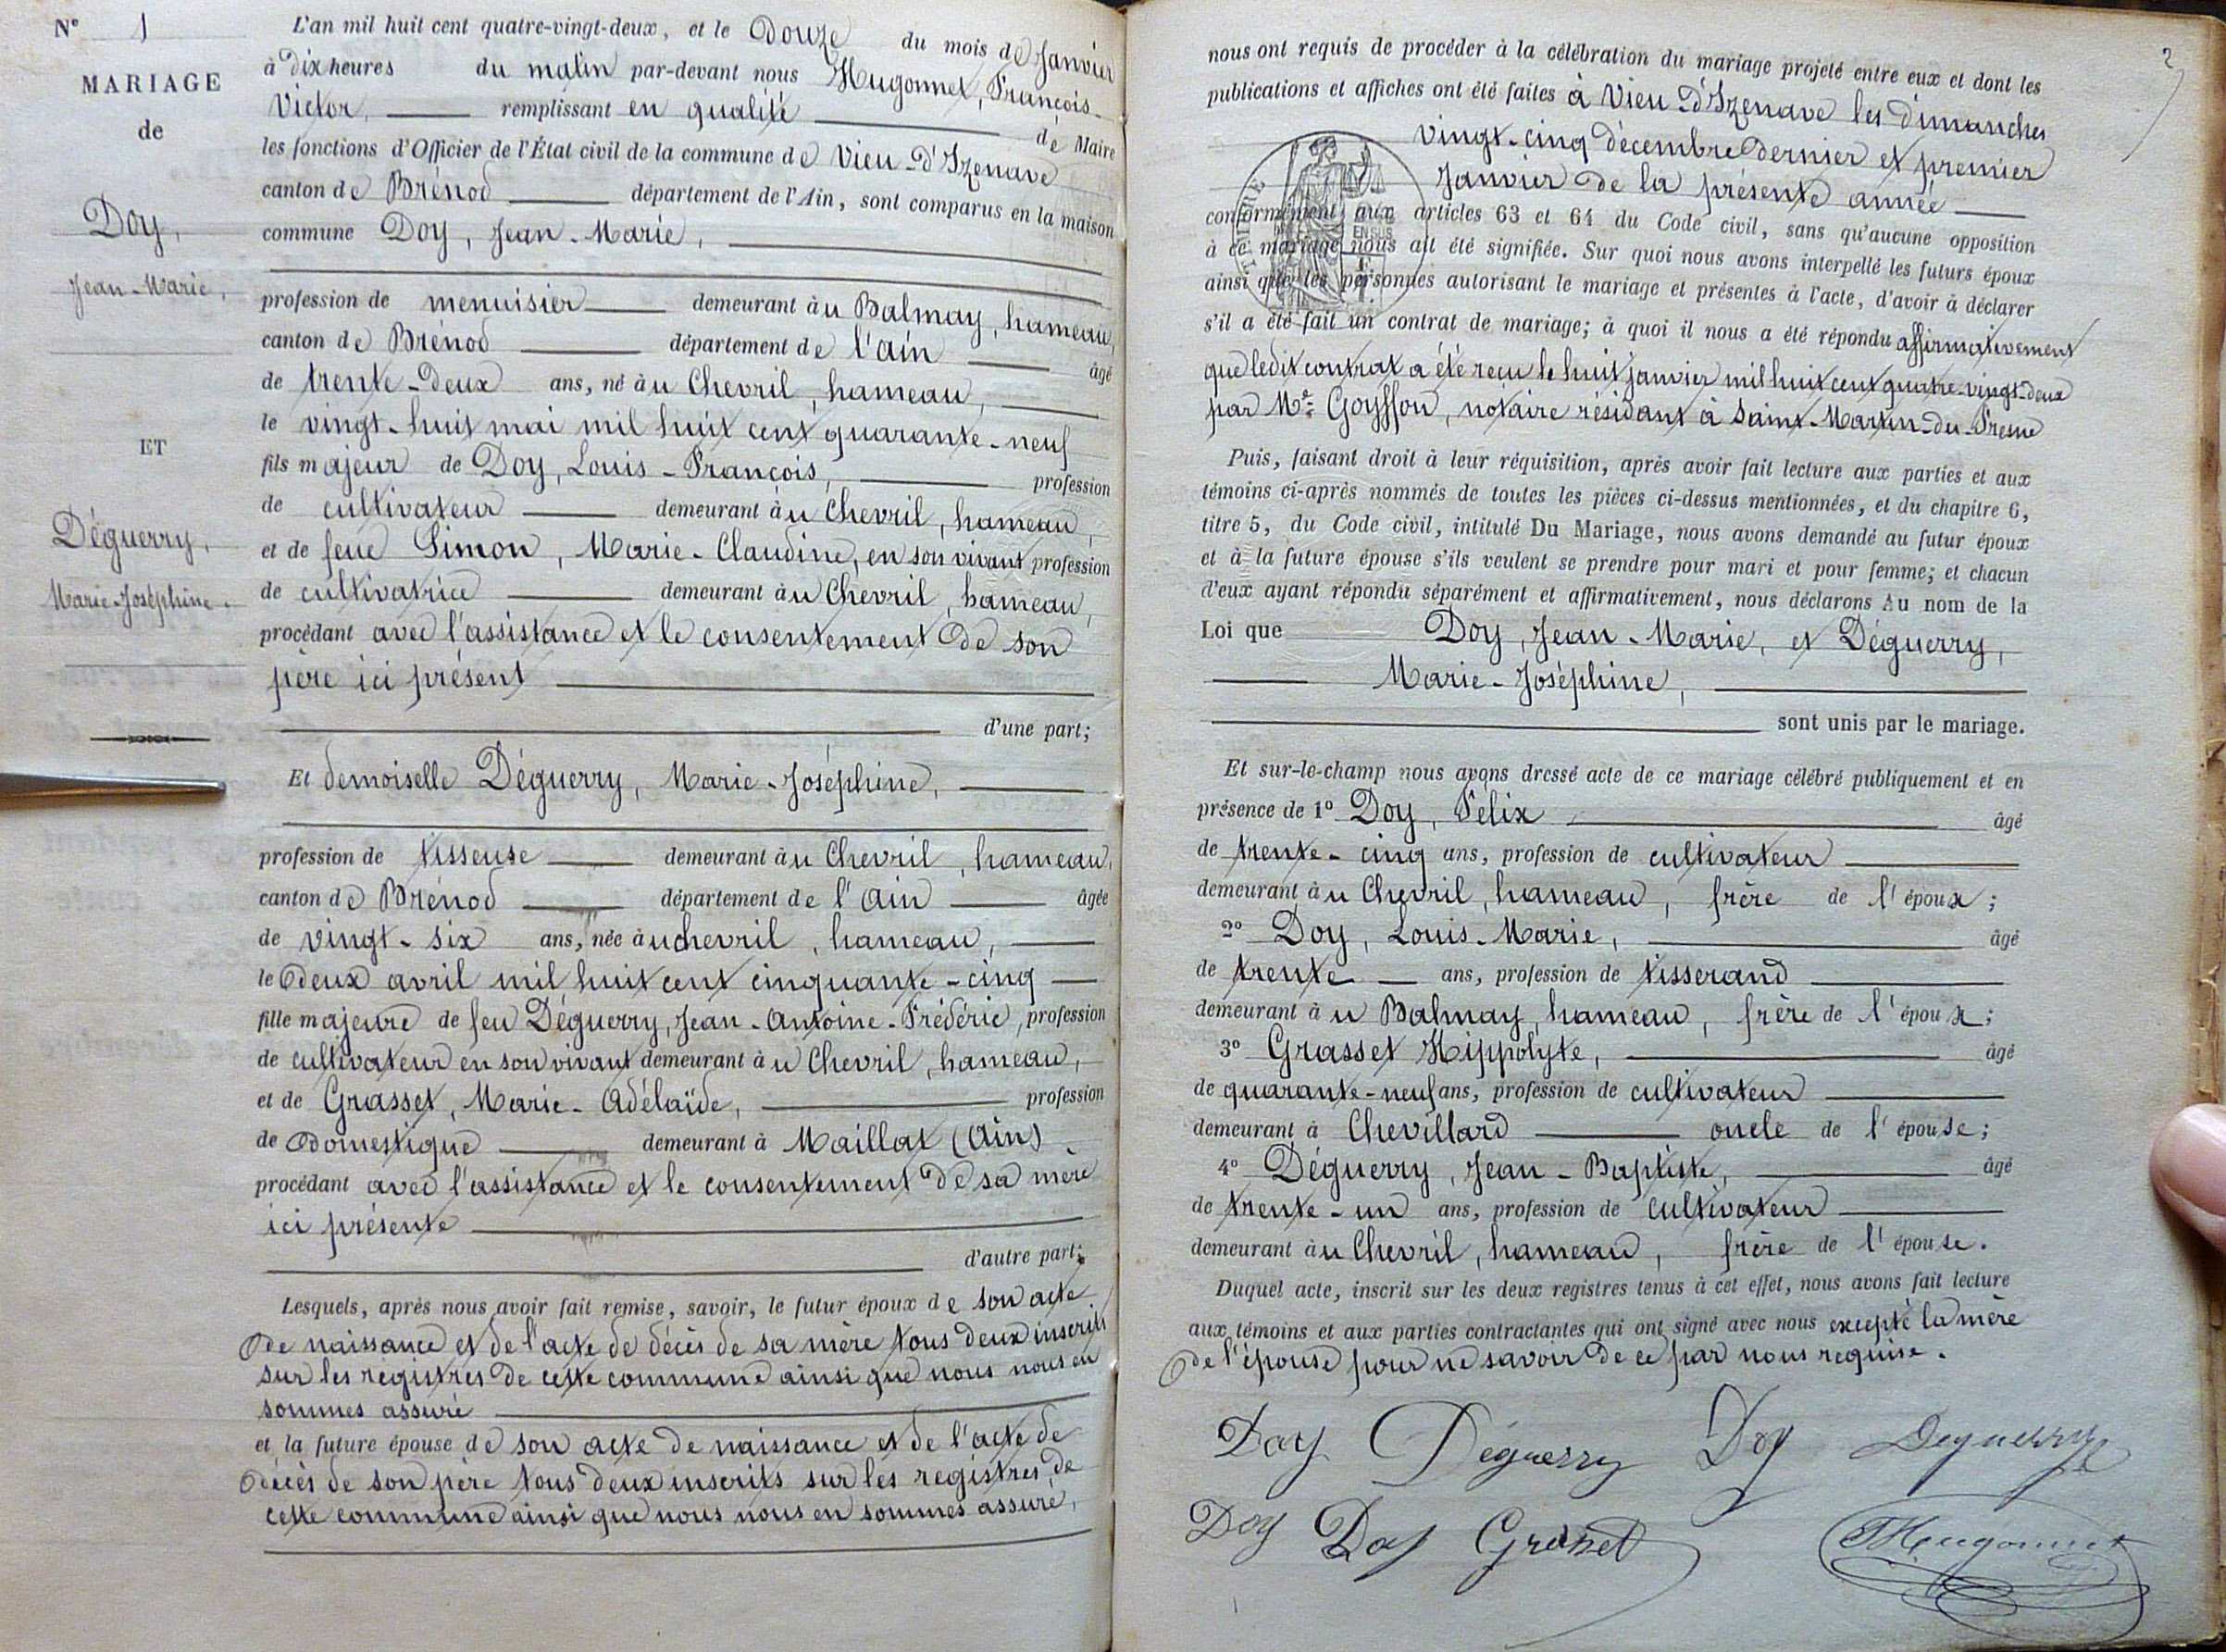 N° 1
MARIAGE
de
Doy,
Jean-Marie,
ET
Déguerry,
Marie-Joséphine.
L'an mil huit cent quatre-vingt-deux, et le Douze du mois de Janvier
à Dix heures du matin par-devant nous Hugonnet, François-
Victor, remplissant en qualité de Maire
les fonctions d'Officier de l'État civil de la commune de Vieu-d'Izenave
canton de Brénod département de l'Ain, sont comparus en la maison
commune Doy, Jean-Marie,
profession de menuisier demeurant àu Balmay, hameau,
canton de Brénod département de l'Ain âgé
de trente-deux ans, né àu Chevril, hameau,
le vingt-huit mai mil huit cent quarante-neuf
fils majeur de Doy, Louis-François, profession
de cultivateur demeurant àu Chevril, hameau,
et de feue Simon, Marie-Claudine, en son vivant profession
de cultivatrice demeurant àu Chevril, hameau,
procédant avec l'assistance et le consentement de son
père ici présent
d'une part;
Et demoiselle Déguerry, Marie-Joséphine,
profession de tisseuse demeurant àu Chevril, hameau,
canton de Brénod département de l'Ain âgée
de vingt-six ans, née àu chevril, hameau,
le deux avril mil huit cent cinquante-cinq
fille majeure de feu Déguerry, Jean-Antoine-Frédéric, profession
de cultivateur en son vivant demeurant àu Chevril, hameau,
et de Grasset, Marie-Adélaïde, profession
de Domestique demeurant à Maillat (Ain)
procédant avec l'assistance et le consentement de sa mère
ici présente
d'autre part;
Lesquels, après nous avoir fait remise, savoir, le futur époux de son acte
de naissance et de l'acte de décès de sa mère tous deux inscrits
sur les registres de cette commune ainsi que nous nous en
sommes assuré
et la future épouse de son acte de naissance et de l'acte de
décès de son père tous deux inscrits sur les registres de
cette commune ainsi que nous nous en sommes assuré,
2
nous ont requis de procéder à la célébration du mariage projeté entre eux et dont les
publications et affiches ont été faites à Vieu-d'Izenave les dimanches
vingt-cinq décembre dernier et premier
Janvier de la présente année
conformément aux articles 63 et 64 du Code civil, sans qu'aucune opposition
à ce mariage nous ait été signifiée. Sur quoi nous avons interpellé les futurs époux
ainsi que les personnes autorisant le mariage et présentes à l'acte, d'avoir à déclarer
s'il a été fait un contrat de mariage; à quoi il nous a été répondu affirmativement
que ledit contrat a été reçu le huit janvier mil huit cent quatre-vingt-deux
par Me Goyffon, notaire résidant à Saint-Martin-du-Fresne
Puis, faisant droit à leur réquisition, après avoir fait lecture aux parties et aux
témoins ci-après nommés de toutes les pièces ci-dessus mentionnées, et du chapitre 6,
titre 5, du Code civil, intitulé Du Mariage, nous avons demandé au futur époux
et à la future épouse s'ils veulent se prendre pour mari et pour femme; et chacun
d'eux ayant répondu séparément et affirmativement, nous déclarons Au nom de la
Loi que Doy, Jean-Marie, et Déguerry,
Marie-Joséphine,
sont unis par le mariage.
Et sur-le-champ nous avons dressé acte de ce mariage célébré publiquement et en
présence de 1° Doy, Félix âgé
de trente-cinq ans, profession de cultivateur
demeurant àu Chevril, hameau, frère de l'époux;
2° Doy, Louis-Marie, âgé
de trente ans, profession de tisserand
demeurant àu Balmay, hameau, frère de l'époux;
3° Grasset Hippolyte, âgé
de quarante-neuf ans, profession de cultivateur
demeurant à Chevillard oncle de l'épouse;
4° Déguerry, Jean-Baptiste, âgé
de trente-un ans, profession de cultivateur
demeurant àu Chevril, hameau, frère de l'épouse.
Duquel acte, inscrit sur les deux registres tenus à cet effet, nous avons fait lecture
aux témoins et aux parties contractantes qui ont signé avec nous excepté la mère
de l'épouse pour ne savoir de ce par nous requise.
Doy Déguerry Doy Deguerry
Doy Doy Grasset Hugonnet